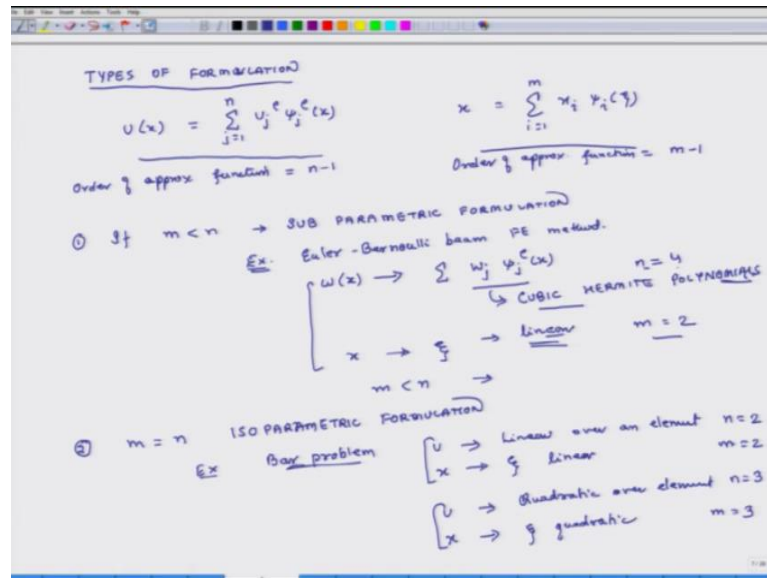 TYPES OF FORMULATION
u(x) = Σ_{j=1}^{n} u_j^e ψ_j^e(x)
x = Σ_{i=1}^{m} x_i ψ_i(ξ)
Order of approx function = n-1
Order of approx. function = m-1
① If m < n → SUB PARAMETRIC FORMULATION
Ex. Euler-Bernoulli beam FE method.
w(x) → Σ w_j ψ_j^e(x) n = 4
↳ CUBIC HERMITE POLYNOMIALS
x → ξ → linear m = 2
m < n →
② m = n ISOPARAMETRIC FORMULATION
Ex Bar problem
u → Linear over an element n = 2
x → ξ linear m = 2
u → Quadratic over element n = 3
x → ξ quadratic m = 3